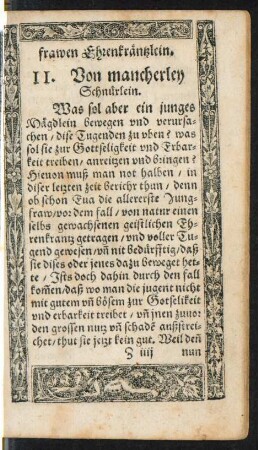 frawen Ehrenkräntzlein.
II. Von mancherley
Schnürlein.
Was sol aber ein junges
Mägdlein bewegen vnd verursa-
chen / dise Tugenden zu vben? was
sol sie zur Gottseligkeit vnd Erbar-
keit treiben / anreitzen vnd bringen?
Hieuon muß man not halben / in
diser letzten zeit bericht thun / denn
ob schon Eua die allererste Jung-
fraw / vor dem fall / von natur einen
selbs gewachsenen geistlichen Eh-
renkrantz getragen / vnd voller Tu-
gend gewesen / vñ nit bedürfftig / daß
sie dises oder jenes dazu beweget het-
te / Ists doch dahin durch den fall
kom̃en / daß wo man die jugent nicht
mit gutem vñ bösem zur Gotselikeit
vnd erbarkeit treibet / vñ jnen zuuor
den grossen nutz vñ schadē außstrei-
chet / thut sie jetzt kein gut. Weil deñ
F iiij nun